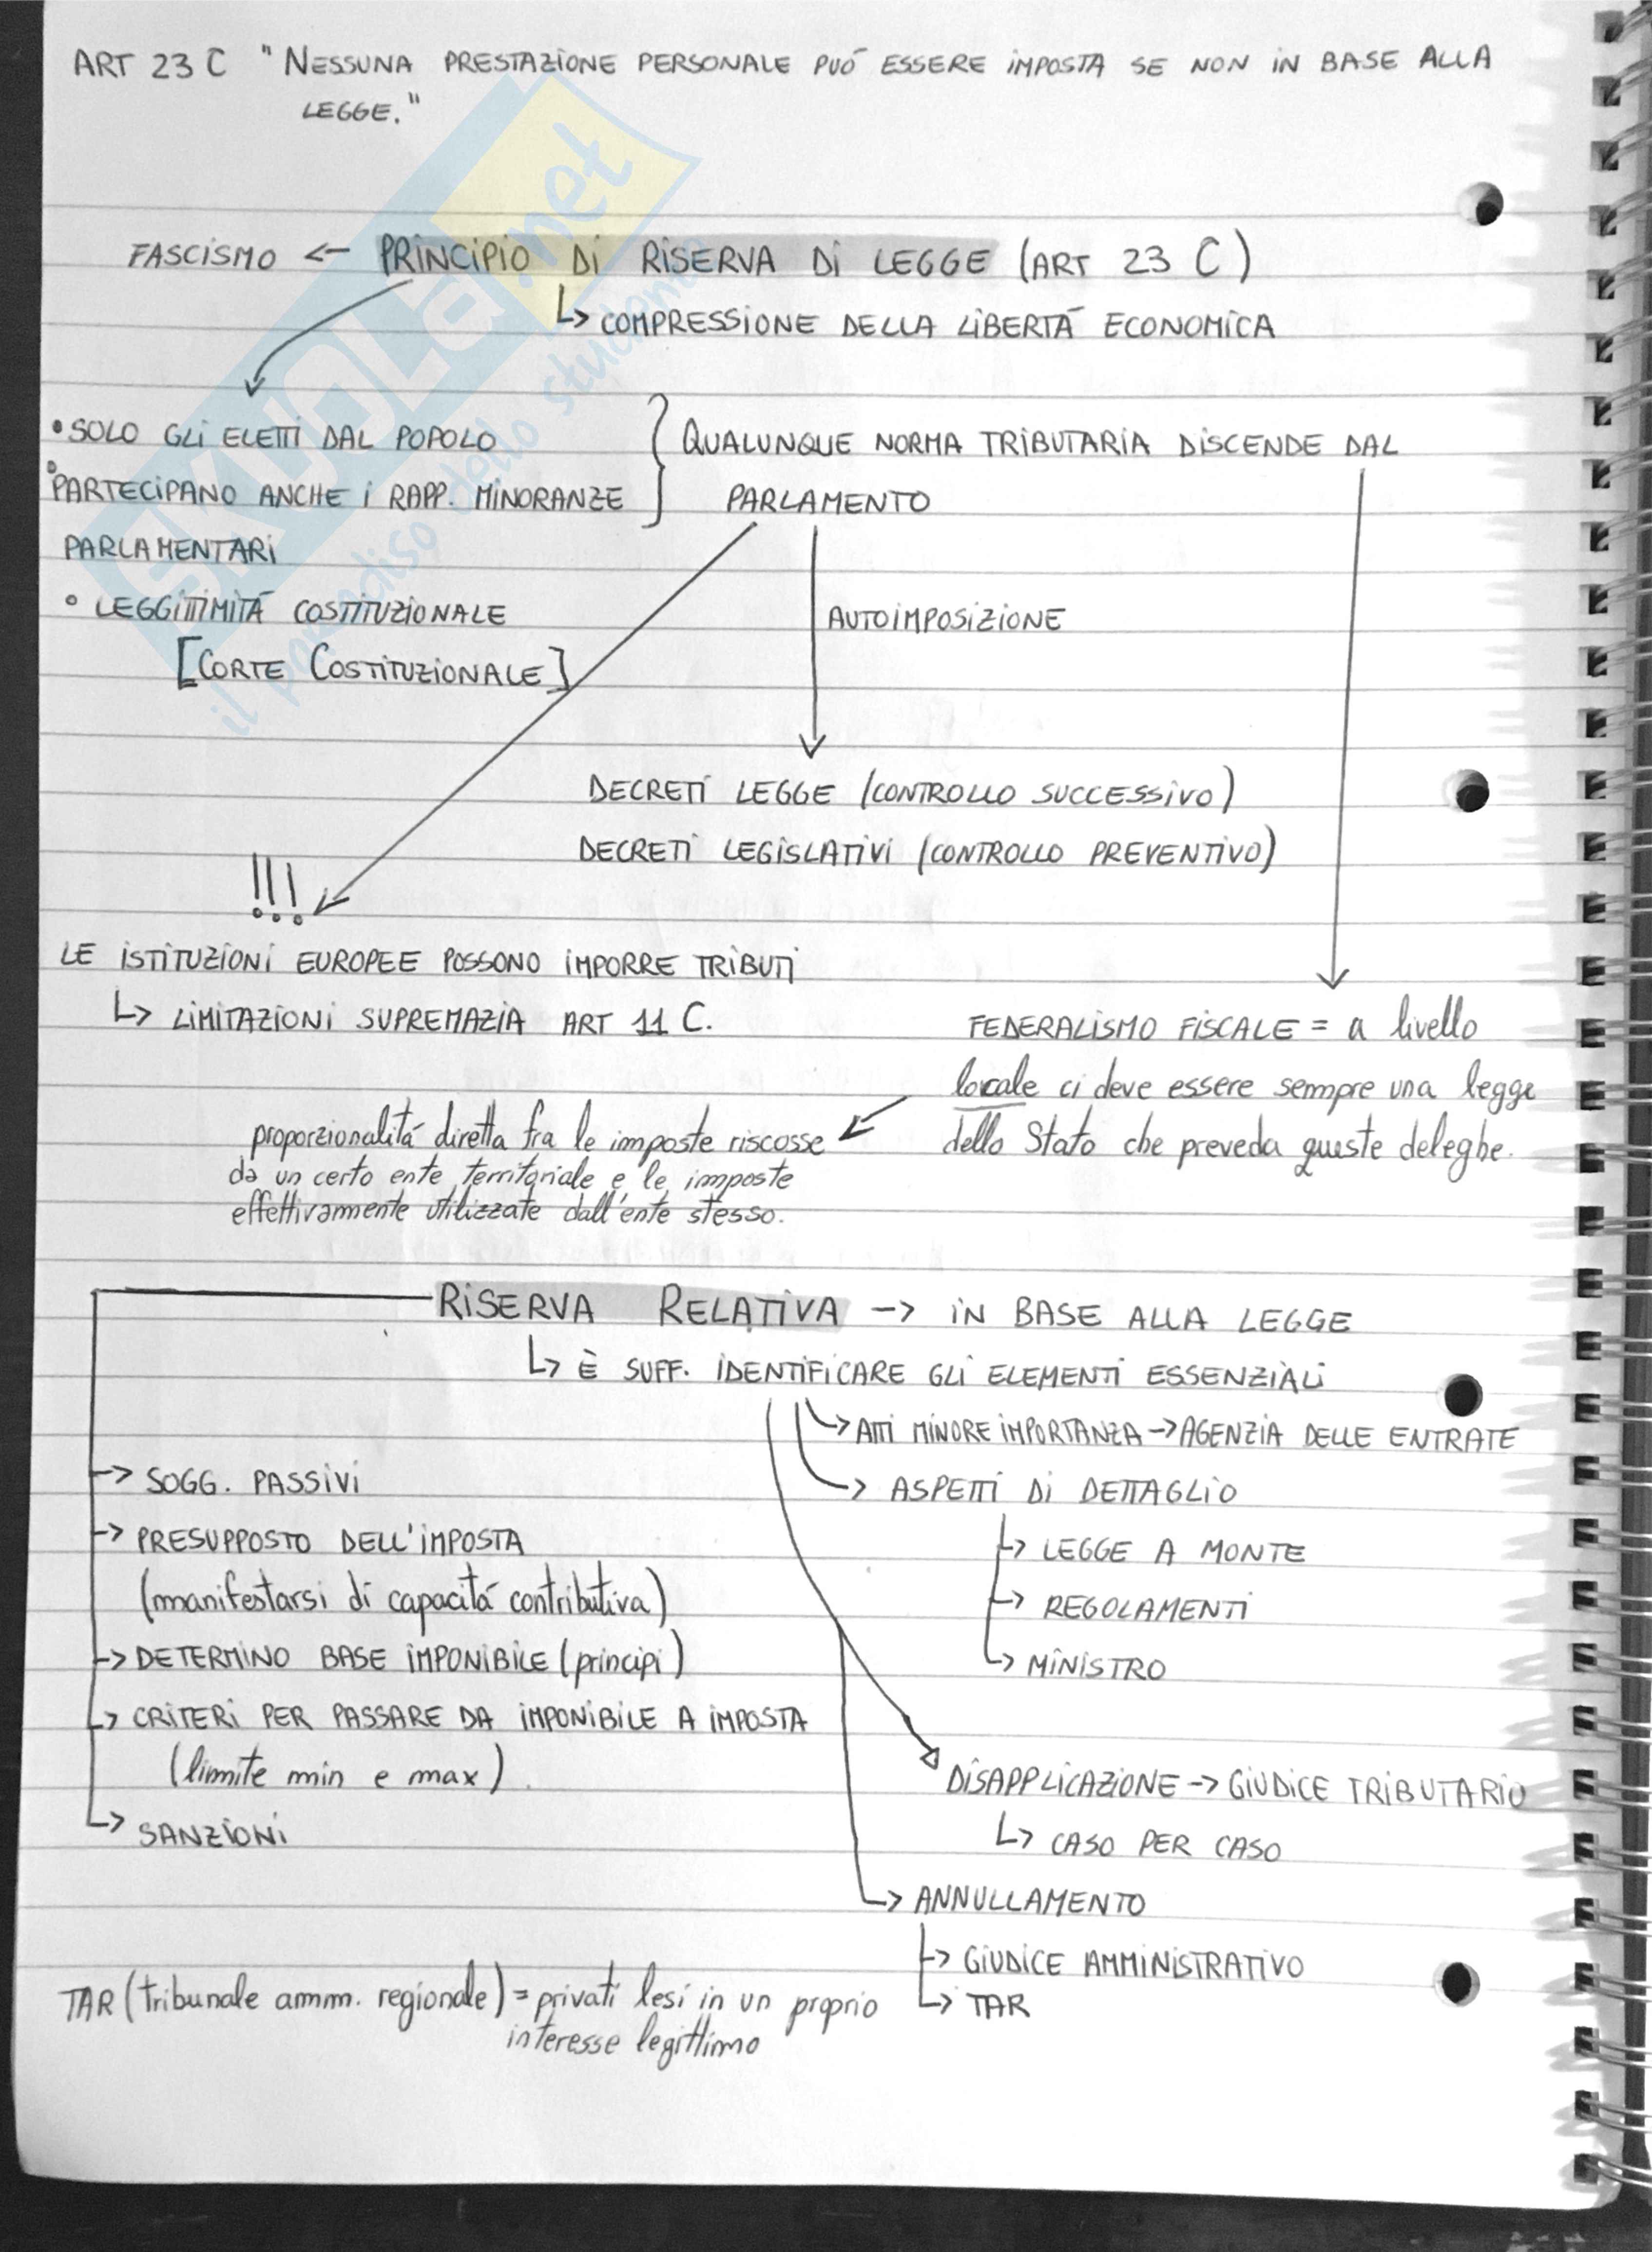 ART 23 C "NESSUNA PRESTAZIONE PERSONALE PUÓ ESSERE IMPOSTA SE NON IN BASE ALLA
LEGGE."
FASCISMO <- PRINCIPIO DI RISERVA DI LEGGE (ART 23 C)
↳ COMPRESSIONE DELLA LIBERTÁ ECONOMICA
• SOLO GLI ELETTI DAL POPOLO
• PARTECIPANO ANCHE I RAPP. MINORANZE
PARLAMENTARI
• LEGGITTIMITÁ COSTITUZIONALE
[CORTE COSTITUZIONALE]
} QUALUNQUE NORMA TRIBUTARIA DISCENDE DAL
PARLAMENTO
AUTOIMPOSIZIONE
DECRETI LEGGE (CONTROLLO SUCCESSIVO)
DECRETI LEGISLATIVI (CONTROLLO PREVENTIVO)
!!!
LE ISTITUZIONI EUROPEE POSSONO IMPORRE TRIBUTI
↳ LIMITAZIONI SUPREMAZIA ART 11 C.
FEDERALISMO FISCALE = a livello
locale ci deve essere sempre una legge
dello Stato che preveda queste deleghe.
proporzionalitá diretta fra le imposte riscosse
da un certo ente territoriale e le imposte
effettivamente utilizzate dall'ente stesso.
RISERVA RELATIVA -> IN BASE ALLA LEGGE
↳ È SUFF. IDENTIFICARE GLI ELEMENTI ESSENZIALI
-> ATTI MINORE IMPORTANZA -> AGENZIA DELLE ENTRATE
-> ASPETTI DI DETTAGLIO
↳ LEGGE A MONTE
-> REGOLAMENTI
↳ MINISTRO
-> SOGG. PASSIVI
-> PRESUPPOSTO DELL'IMPOSTA
(manifestarsi di capacitá contributiva)
-> DETERMINO BASE IMPONIBILE (principi)
-> CRITERI PER PASSARE DA IMPONIBILE A IMPOSTA
(limite min e max).
-> SANZIONI
DISAPPLICAZIONE -> GIUDICE TRIBUTARIO
↳ CASO PER CASO
-> ANNULLAMENTO
↳ GIUDICE AMMINISTRATIVO
↳ TAR
TAR (tribunale amm. regionale) = privati lesi in un proprio
interesse legittimo
SKUOLA.net
il paradiso dello studente